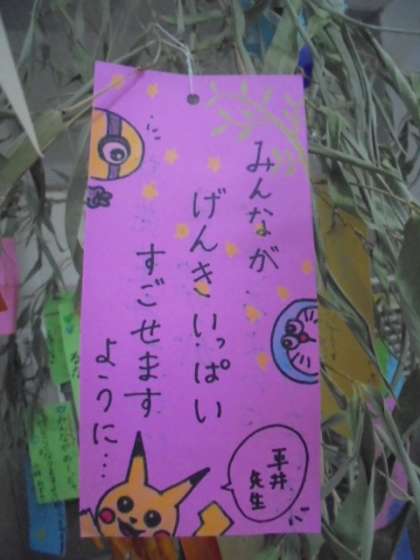 みんなが
げんきいっぱい
すごせます
ように…
平井
先生